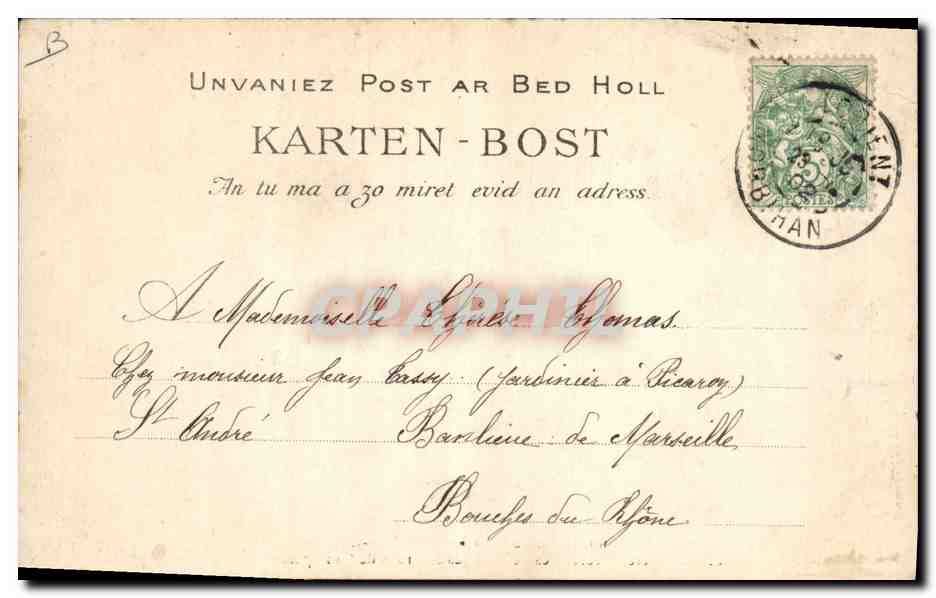 B
UNVANIEZ POST AR BED HOLL
KARTEN-BOST
An tu ma a zo miret evid an adress.
5
POSTES
LORIENT
MORBIHAN
CPAPHIL
A Mademoiselle Thérèse Thomas.
Chez monsieur Jean Tassy. (Jardinier à Picaroy)
St André Banlieue de Marseille
Bouches du Rhône